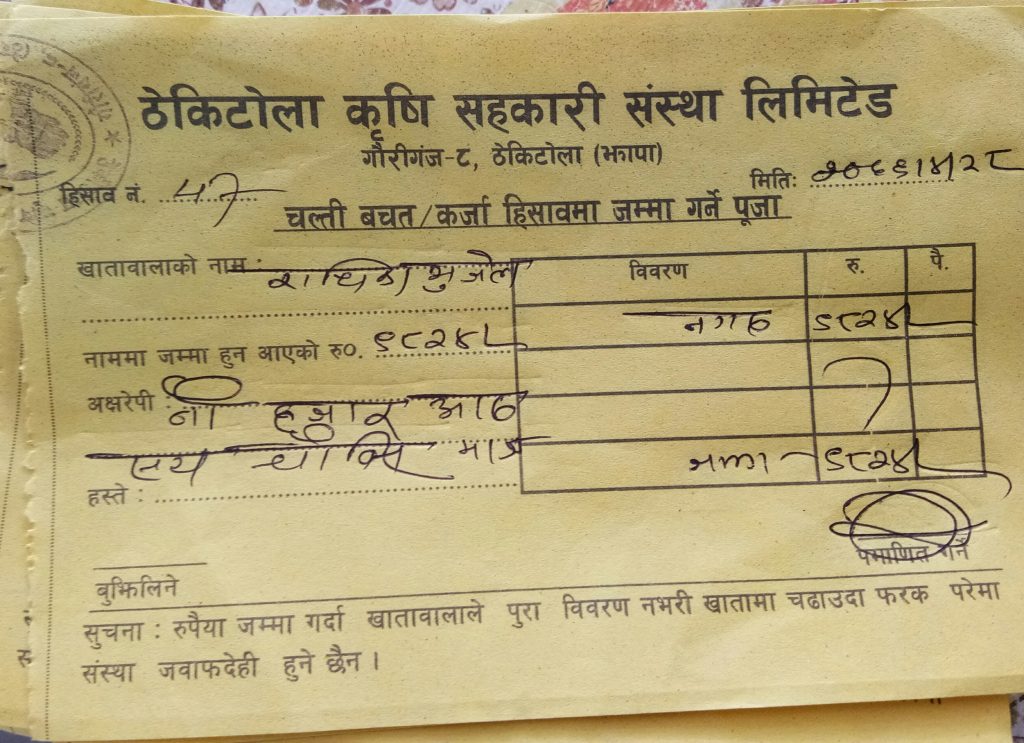 ठेकिटोला कृषि सहकारी संस्था लिमिटेड
गौरीगंज-८, ठेकिटोला (झापा)
हिसाव नं. 47 मितिः २०६६।४।२८
चल्ती बचत/कर्जा हिसावमा जम्मा गर्ने पूजा
खातावालाको नाम : राधिका भुजेल
विवरण रु. पै.
नाममा जम्मा हुन आएको रु०. ९८२४।-
नगद ९८२४।-
अक्षरेपी : नौ हजार आठ
सय चौविस मात्र
जम्मा ९८२४।-
हस्ते :
प्रमाणित गर्ने
बुझिलिने
सुचना : रुपैया जम्मा गर्दा खातावालाले पुरा विवरण नभरी खातामा चढाउदा फरक परेमा
संस्था जवाफदेही हुने छैन ।